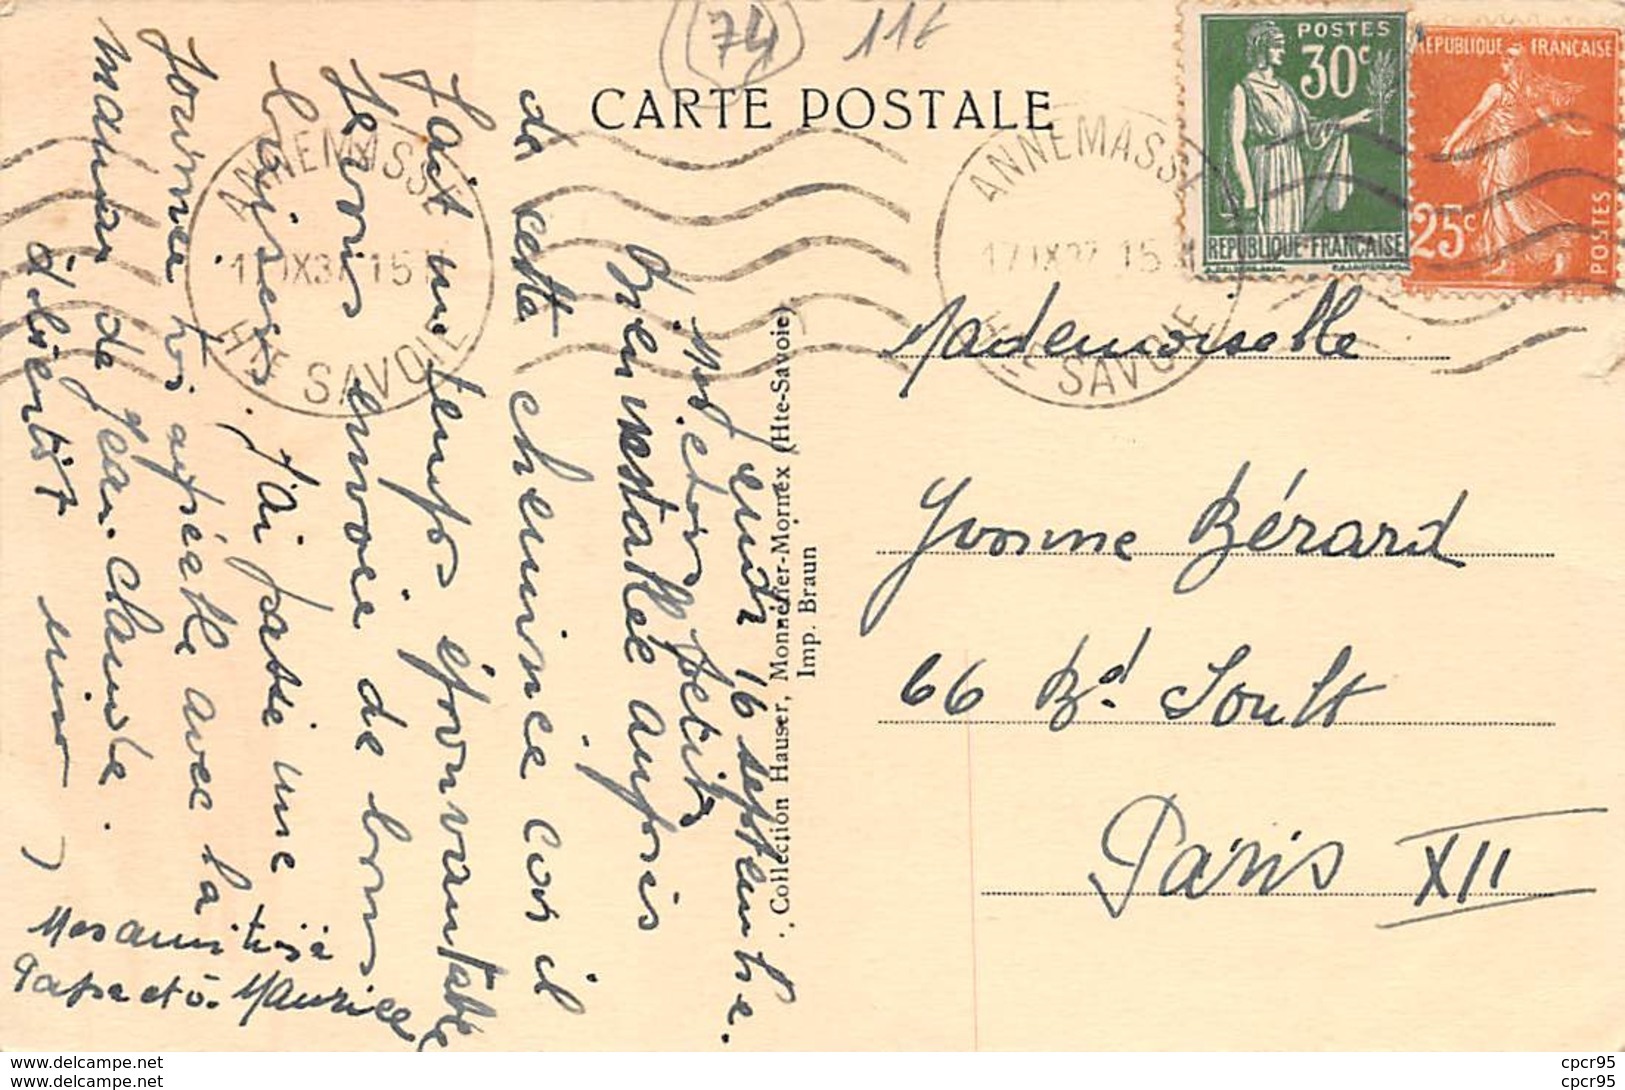 (74) 11€
CARTE POSTALE
POSTES
30c
REPUBLIQUE-FRANÇAISE
REPUBLIQUE FRANÇAISE
25c
POSTES
ANNEMASSE
17 IX 37 15
HTE SAVOIE
ANNEMASSE
17 IX 37 15
HTE SAVOIE
Mademoiselle
Yvonne Bérard
66 Bd. Soult
Paris XII
Collection Hauser, Monnetier-Mornex (Hte-Savoie)
Imp. Braun
jeudi 16 septembre.
Mes chers petits
Bien installée auprès
de cette cheminée car il
fait un temps épouvantable
je vous envoie de bons
baisers. J'ai passé une
journée très agréable avec la
maman de Jean-Claude.
à bientôt
Mes amitiés à
Papa et à Maurice
cpcr95
cpcr95